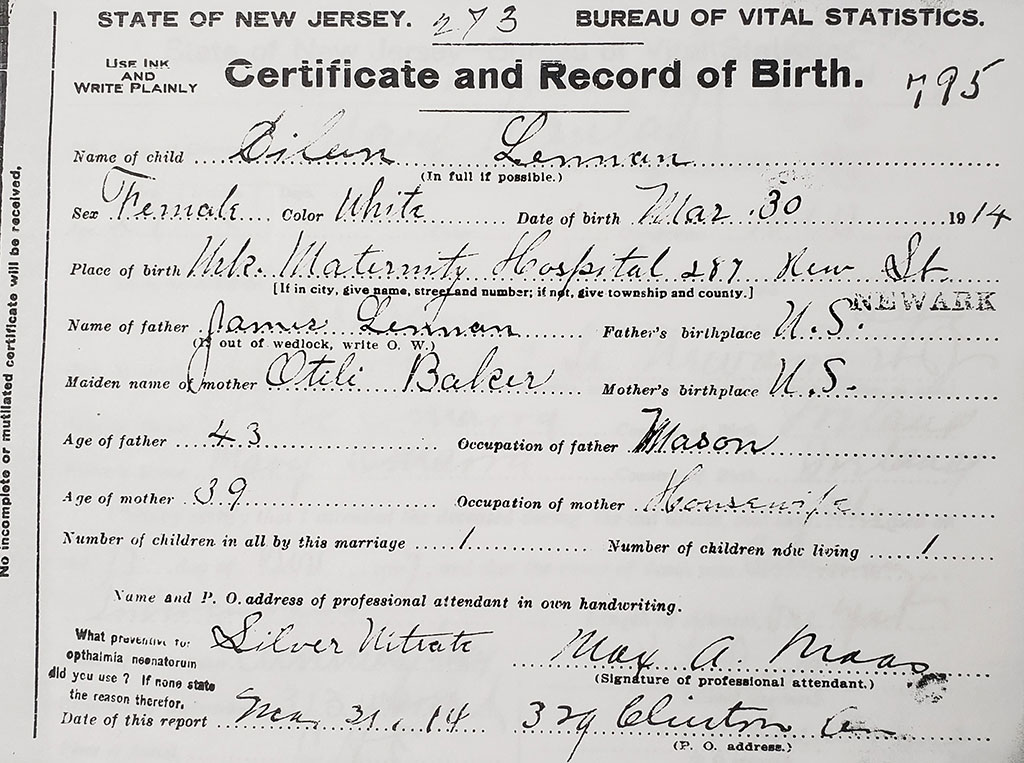 STATE OF NEW JERSEY. 273 BUREAU OF VITAL STATISTICS.
USE INK AND WRITE PLAINLY
Certificate and Record of Birth. 795
Name of child Eileen Lennan
(In full if possible.)
Sex Female Color White Date of birth Mar. 30 1914
Place of birth Nrk. Maternity Hospital 287 New St
[If in city, give name, street and number; if not, give township and county.] NEWARK
Name of father James Lennan Father's birthplace U.S.
(If out of wedlock, write O. W.)
Maiden name of mother Otili Baker Mother's birthplace U.S.
Age of father 43 Occupation of father Mason
Age of mother 39 Occupation of mother Housewife
Number of children in all by this marriage 1 Number of children now living 1
Name and P. O. address of professional attendant in own handwriting.
What preventive for opthalmia neonatorum did you use? If none state the reason therefor. Silver Nitrate Max A. Maas
(Signature of professional attendant.)
Date of this report Mar 31, 14 329 Clinton
(P. O. address.)
No incomplete or mutilated certificate will be received.